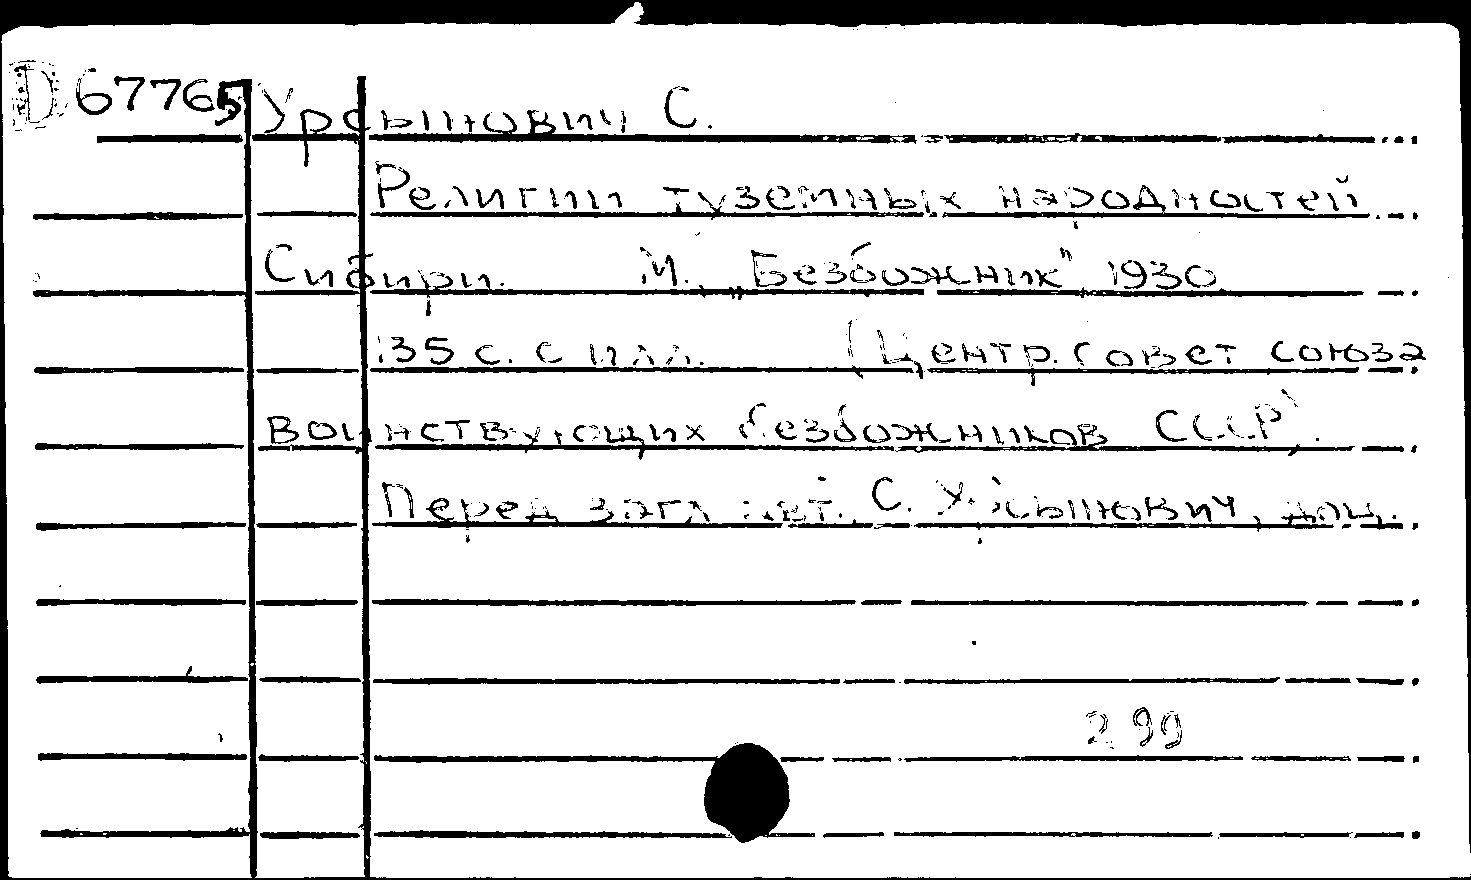 D 67765 Урсынович С.
Религии туземных народностей
Сибири. М., „Безбожник", 1930.
35 с. с илл. (Центр. совет союза
воинствующих безбожников СССР).
Перед загл. авт.: С. Урсынович, доц.
299